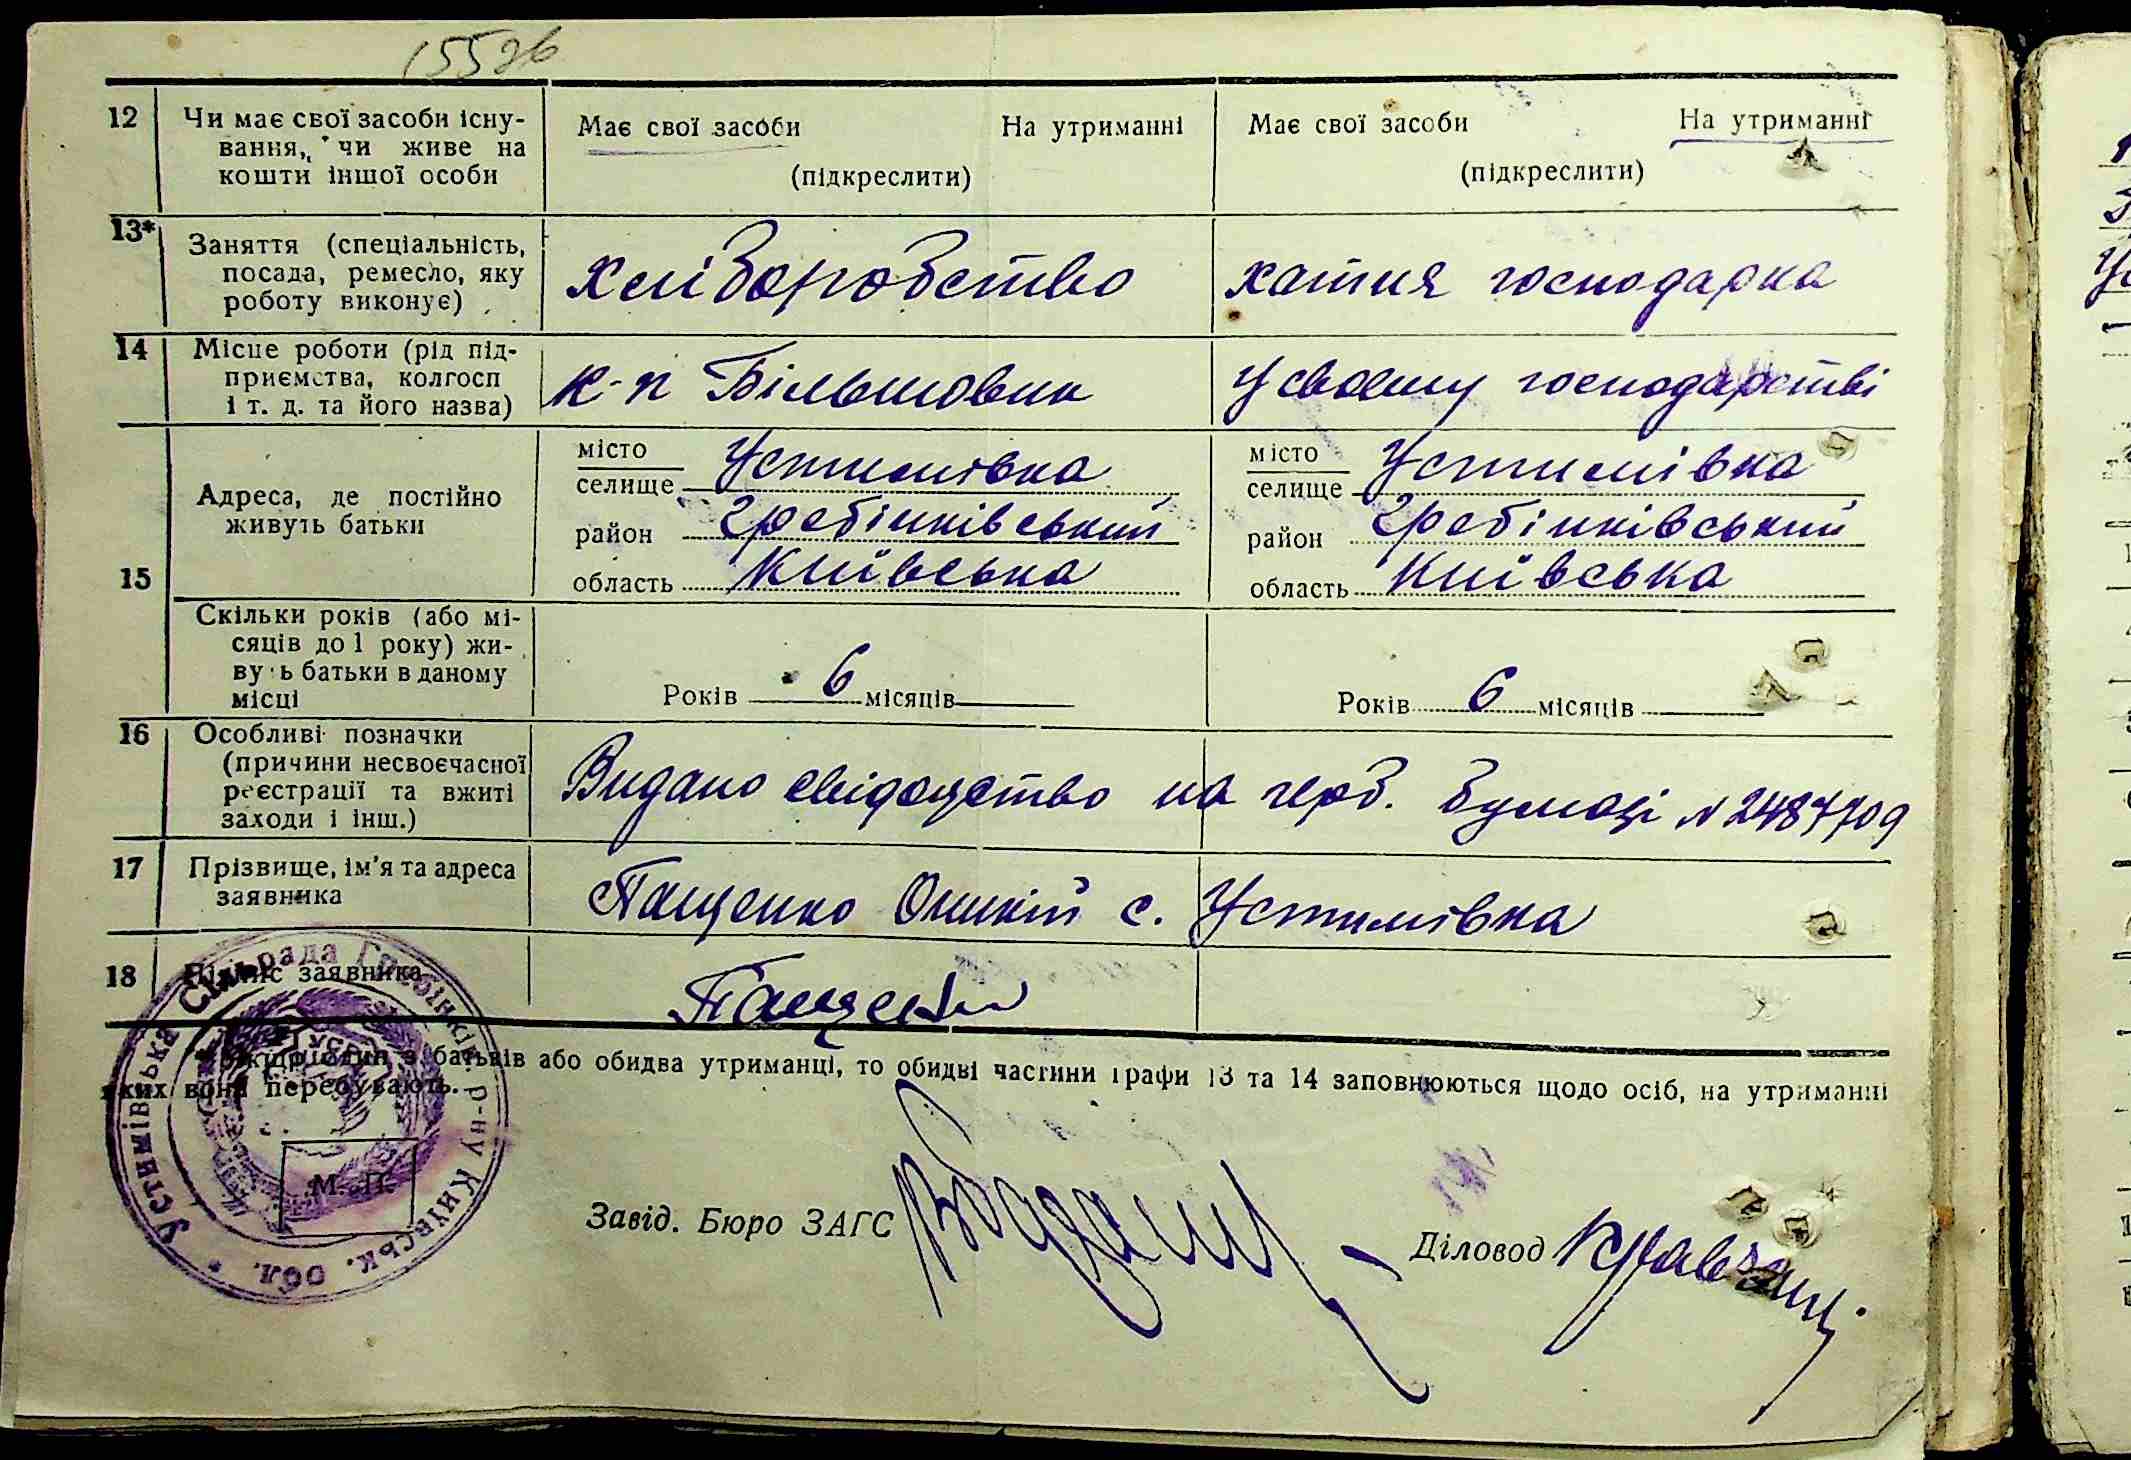 12
Чи має свої засоби існу-
вання, чи живе на
кошти іншої особи
Має свої засоби На утриманні
(підкреслити)
Має свої засоби На утриманні
(підкреслити)
13*
Заняття (спеціальність,
посада, ремесло, яку
роботу виконує)
хліборобство
хатня господарка
14
Місце роботи (рід під-
приємства, колгосп
і т. д. та його назва)
к-п Більшовик
У своєму господарстві
15
Адреса, де постійно
живуть батьки
місто
селище Устимівка
район Гребінківський
область Київська
місто
селище Устимівка
район Гребінківський
область Київська
Скільки років (або мі-
сяців до 1 року) жи-
вуть батьки в даному
місці
Років 6 місяців
Років 6 місяців
16
Особливі позначки
(причини несвоєчасної
реєстрації та вжиті
заходи і інш.)
Видано свідоцтво на герб. бумазі № 2487709
17
Прізвище, ім'я та адреса
заявника
Пащенко Оникій с. Устимівка
18
Підпис заявника
Пащенко
один з батьків або обидва утриманці, то обидві частини графи 13 та 14 заповнюються щодо осіб, на утриманні
яких вони перебувають.
Устимівська Сільрада Гребінків. р-ну Київськ. обл.
УСРР
М. П.
Завід. Бюро ЗАГС
Діловод